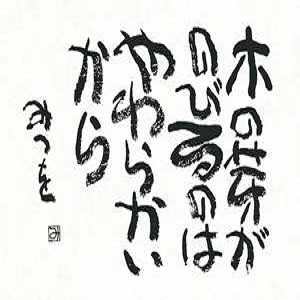 木の芽が
のびるのは
やわらかい
から
みつを
み